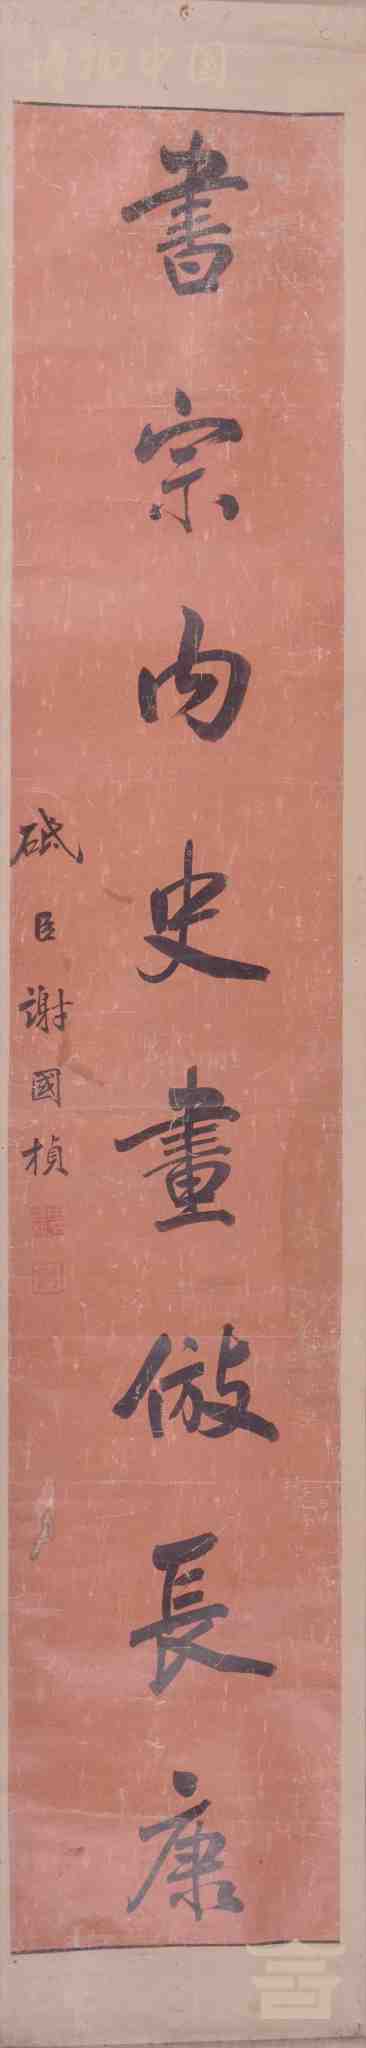 博物中国
書宗内史畫倣長康
砥臣謝國楨